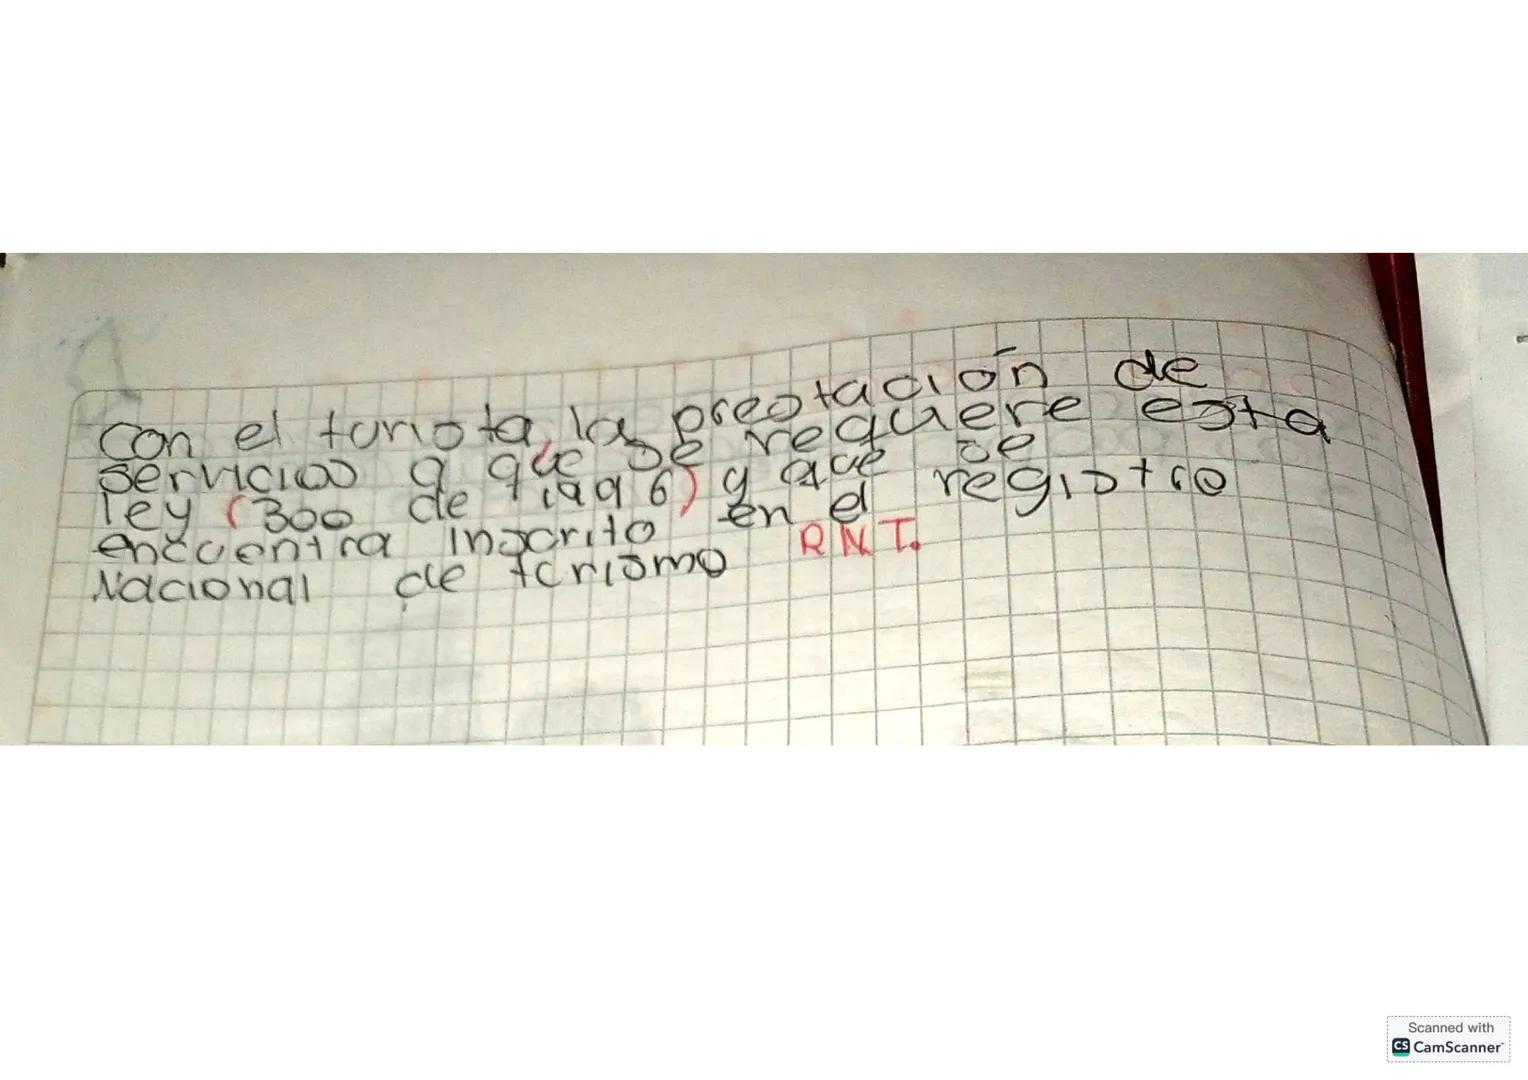 con el turista, la prestación de
servicios a que se requiere esta
ley (300 de 1996) y que se
encuentra inscrito en el registro
Nacional de turismo R.N.T.
Scanned with
CS CamScanner